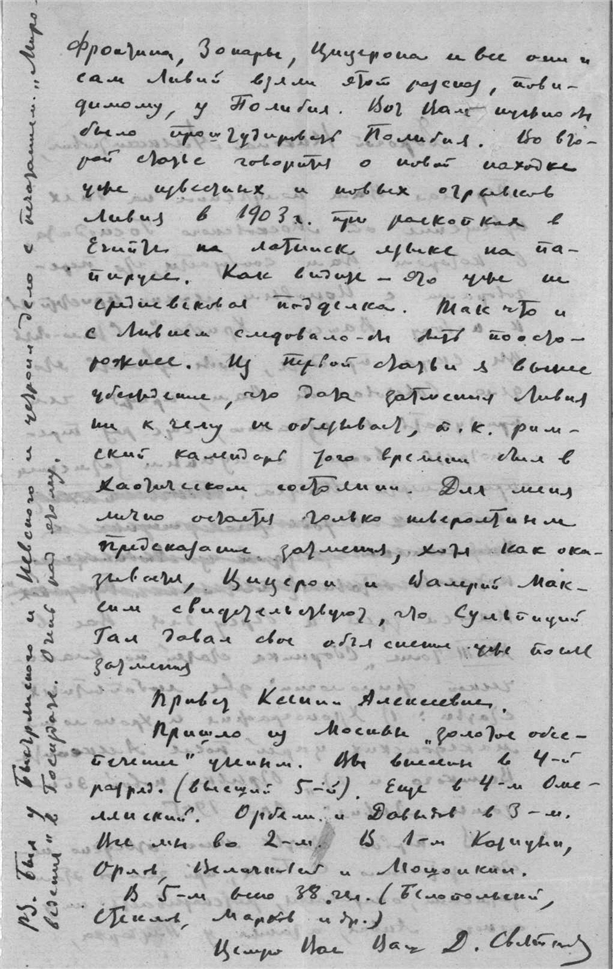 Фронтина, Зонары, Цицерона и все они и
сам Ливий взяли этот рассказ, пови-
димому, у Полибия. Вот Вам нужно
было проштудировать Полибия. Во вто-
рой статье говорится о новой находке
уже известных и новых отрывков
Ливия в 1903 г. при раскопках в
Египте на латинск языке на па-
пирусе. Как видите – это уже не
средневековая подделка. Так что и
с Ливием следовало-бы быть поосто-
рожнее. Из первой статьи я вынес
убеждение, что дата затмения Ливия
ни к чему не обязывает, т.к. рим-
ский календарь того времени был в
хаотическом состоянии. Для меня
лично остается только невероятным
предсказание затмения, хотя как ока-
зывается, Цицерон и Валерий Мак-
сим свидетельствуют, что Сульпиций
Галл давал свое объяснение уже после
затмения
Привет Ксении Алексеевне.
Пришло из Москвы „золотое обес-
печение" ученым. Вы внесены в 4-й
разряд. (высший 5-й). Еще в 4-м Оме-
лянский. Орбели и Давыдов в 3-м.
Все мы во 2-м. В 1-м
Орлов, и
В 5-м всего 38 чел. (Белопольский,
Стеклов, Марков и др.)
Целую Вас Ваш Д. Святский
PS. Был у и Невского и устроил дело с печатанием „Миро-
ведения" в Госиздате. Очень рад этому.